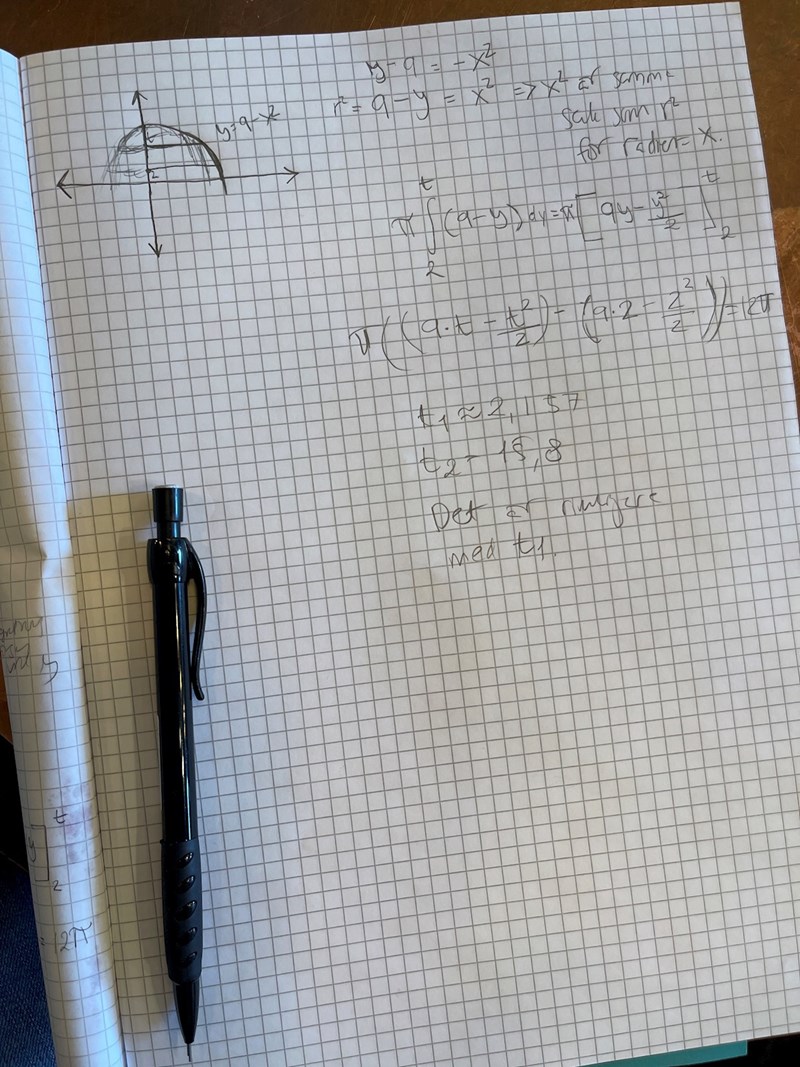 y-9 = -x²
r² = 9-y = x² => x² är samma
sak som r²
för radien = x.
y=9-x²
2
π∫₂ᵗ (9-y) dy = π[9y - y²/2]₂ᵗ
π((9·t - t²/2) - (9·2 - 2²/2)) = 12π
t₁ ≈ 2,157
t₂ = 15,8
Det är rimligare
med t₁.
y
t
y]
2
= 12π